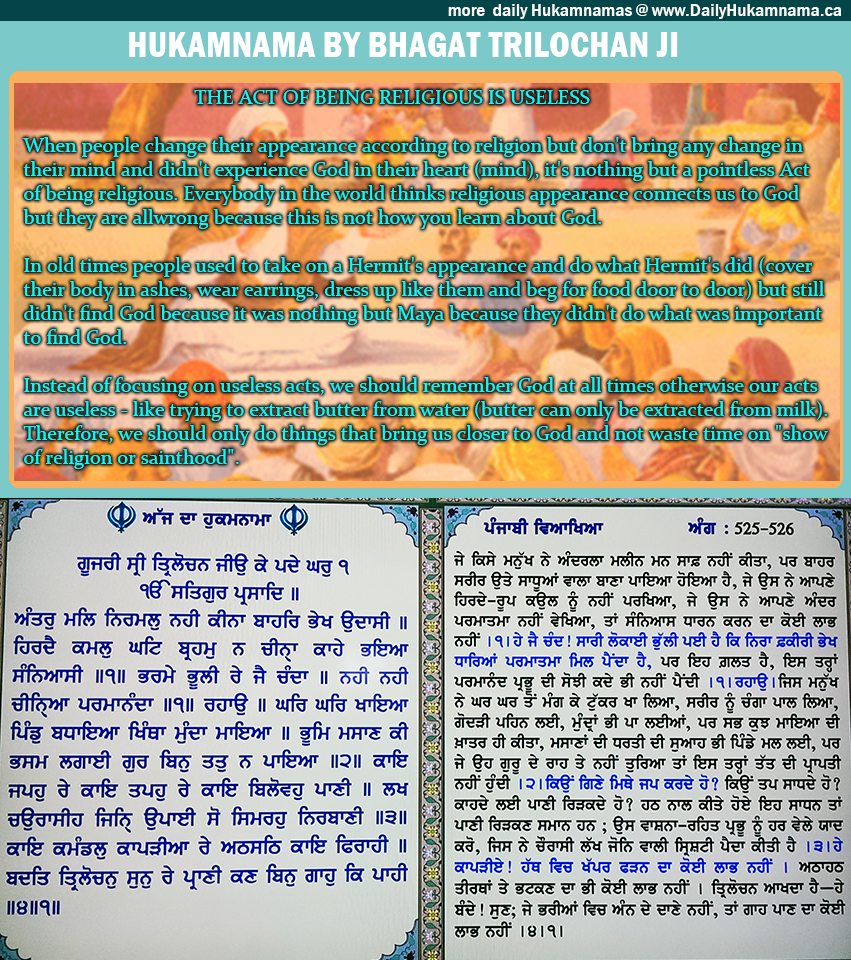 more daily Hukamnamas @ www.DailyHukamnama.ca
HUKAMNAMA BY BHAGAT TRILOCHAN JI
THE ACT OF BEING RELIGIOUS IS USELESS
When people change their appearance according to religion but don't bring any change in
their mind and didn't experience God in their heart (mind), it's nothing but a pointless Act
of being religious. Everybody in the world thinks religious appearance connects us to God
but they are allwrong because this is not how you learn about God.
In old times people used to take on a Hermit's appearance and do what Hermit's did (cover
their body in ashes, wear earrings, dress up like them and beg for food door to door) but still
didn't find God because it was nothing but Maya because they didn't do what was important
to find God.
Instead of focusing on useless acts, we should remember God at all times otherwise our acts
are useless - like trying to extract butter from water (butter can only be extracted from milk).
Therefore, we should only do things that bring us closer to God and not waste time on "show
of religion or sainthood".
ਅੱਜ ਦਾ ਹੁਕਮਨਾਮਾ
ਗੂਜਰੀ ਸ੍ਰੀ ਤ੍ਰਿਲੋਚਨ ਜੀਉ ਕੇ ਪਦੇ ਘਰੁ ੧
ੴ ਸਤਿਗੁਰ ਪ੍ਰਸਾਦਿ ॥
ਅੰਤਰੁ ਮਲਿ ਨਿਰਮਲੁ ਨਹੀ ਕੀਨਾ ਬਾਹਰਿ ਭੇਖ ਉਦਾਸੀ ॥
ਹਿਰਦੈ ਕਮਲੁ ਘਟਿ ਬ੍ਰਹਮੁ ਨ ਚੀਨ੍ਹਾ ਕਾਹੇ ਭਇਆ
ਸੰਨਿਆਸੀ ॥੧॥ ਭਰਮੇ ਭੂਲੀ ਰੇ ਜੈ ਚੰਦਾ ॥ ਨਹੀ ਨਹੀ
ਚੀਨ੍ਹਿਆ ਪਰਮਾਨੰਦਾ ॥੧॥ ਰਹਾਉ ॥ ਘਰਿ ਘਰਿ ਖਾਇਆ
ਪਿੰਡੁ ਬਧਾਇਆ ਖਿੰਥਾ ਮੁੰਦਾ ਮਾਇਆ ॥ ਭੂਮਿ ਮਸਾਣ ਕੀ
ਭਸਮ ਲਗਾਈ ਗੁਰ ਬਿਨੁ ਤਤੁ ਨ ਪਾਇਆ ॥੨॥ ਕਾਇ
ਜਪਹੁ ਰੇ ਕਾਇ ਤਪਹੁ ਰੇ ਕਾਇ ਬਿਲੋਵਹੁ ਪਾਣੀ ॥ ਲਖ
ਚਉਰਾਸੀਹ ਜਿਨ੍ਹਿ ਉਪਾਈ ਸੋ ਸਿਮਰਹੁ ਨਿਰਬਾਣੀ ॥੩॥
ਕਾਇ ਕਮੰਡਲੁ ਕਾਪੜੀਆ ਰੇ ਅਠਸਠਿ ਕਾਇ ਫਿਰਾਹੀ ॥
ਬਦਤਿ ਤ੍ਰਿਲੋਚਨੁ ਸੁਨੁ ਰੇ ਪ੍ਰਾਣੀ ਕਣ ਬਿਨੁ ਗਾਹੁ ਕਿ ਪਾਹੀ
॥੪॥੧॥
ਪੰਜਾਬੀ ਵਿਆਖਿਆ ਅੰਗ : 525-526
ਜੇ ਕਿਸੇ ਮਨੁੱਖ ਨੇ ਅੰਦਰਲਾ ਮਲੀਨ ਮਨ ਸਾਫ਼ ਨਹੀਂ ਕੀਤਾ, ਪਰ ਬਾਹਰ
ਸਰੀਰ ਉਤੇ ਸਾਧੂਆਂ ਵਾਲਾ ਬਾਣਾ ਪਾਇਆ ਹੋਇਆ ਹੈ, ਜੇ ਉਸ ਨੇ ਆਪਣੇ
ਹਿਰਦੇ-ਰੂਪ ਕਉਲ ਨੂੰ ਨਹੀਂ ਪਰਖਿਆ, ਜੇ ਉਸ ਨੇ ਆਪਣੇ ਅੰਦਰ
ਪਰਮਾਤਮਾ ਨਹੀਂ ਵੇਖਿਆ, ਤਾਂ ਸੰਨਿਆਸ ਧਾਰਨ ਕਰਨ ਦਾ ਕੋਈ ਲਾਭ
ਨਹੀਂ ।੧।ਹੇ ਜੈ ਚੰਦ! ਸਾਰੀ ਲੋਕਾਈ ਭੁੱਲੀ ਪਈ ਹੈ ਕਿ ਨਿਰਾ ਫ਼ਕੀਰੀ ਭੇਖ
ਧਾਰਿਆਂ ਪਰਮਾਤਮਾ ਮਿਲ ਪੈਂਦਾ ਹੈ, ਪਰ ਇਹ ਗ਼ਲਤ ਹੈ, ਇਸ ਤਰ੍ਹਾਂ
ਪਰਮਾਨੰਦ ਪ੍ਰਭੂ ਦੀ ਸੋਝੀ ਕਦੇ ਭੀ ਨਹੀਂ ਪੈਂਦੀ ।੧।ਰਹਾਉ।ਜਿਸ ਮਨੁੱਖ
ਨੇ ਘਰ ਘਰ ਤੋਂ ਮੰਗ ਕੇ ਟੁੱਕਰ ਖਾ ਲਿਆ, ਸਰੀਰ ਨੂੰ ਚੰਗਾ ਪਾਲ ਲਿਆ,
ਗੋਦੜੀ ਪਹਿਨ ਲਈ, ਮੁੰਦ੍ਰਾਂ ਭੀ ਪਾ ਲਈਆਂ, ਪਰ ਸਭ ਕੁਝ ਮਾਇਆ ਦੀ
ਖ਼ਾਤਰ ਹੀ ਕੀਤਾ, ਮਸਾਣਾਂ ਦੀ ਧਰਤੀ ਦੀ ਸੁਆਹ ਭੀ ਪਿੰਡੇ ਮਲ ਲਈ, ਪਰ
ਜੇ ਉਹ ਗੁਰੂ ਦੇ ਰਾਹ ਤੇ ਨਹੀਂ ਤੁਰਿਆ ਤਾਂ ਇਸ ਤਰ੍ਹਾਂ ਤੱਤ ਦੀ ਪ੍ਰਾਪਤੀ
ਨਹੀਂ ਹੁੰਦੀ ।੨।ਕਿਉਂ ਗਿਣੇ ਮਿਥੇ ਜਪ ਕਰਦੇ ਹੋ? ਕਿਉਂ ਤਪ ਸਾਧਦੇ ਹੋ?
ਕਾਹਦੇ ਲਈ ਪਾਣੀ ਰਿੜਕਦੇ ਹੋ? ਹਠ ਨਾਲ ਕੀਤੇ ਹੋਏ ਇਹ ਸਾਧਨ ਤਾਂ
ਪਾਣੀ ਰਿੜਕਣ ਸਮਾਨ ਹਨ ; ਉਸ ਵਾਸ਼ਨਾ-ਰਹਿਤ ਪ੍ਰਭੂ ਨੂੰ ਹਰ ਵੇਲੇ ਯਾਦ
ਕਰੋ, ਜਿਸ ਨੇ ਚੌਰਾਸੀ ਲੱਖ ਜੋਨਿ ਵਾਲੀ ਸ੍ਰਿਸ਼ਟੀ ਪੈਦਾ ਕੀਤੀ ਹੈ ।੩।ਹੇ
ਕਾਪੜੀਏ! ਹੱਥ ਵਿਚ ਖੱਪਰ ਫੜਨ ਦਾ ਕੋਈ ਲਾਭ ਨਹੀਂ । ਅਠਾਹਠ
ਤੀਰਥਾਂ ਤੇ ਭਟਕਣ ਦਾ ਭੀ ਕੋਈ ਲਾਭ ਨਹੀਂ । ਤ੍ਰਿਲੋਚਨ ਆਖਦਾ ਹੈ—ਹੇ
ਬੰਦੇ! ਸੁਣ; ਜੇ ਭਰੀਆਂ ਵਿਚ ਅੰਨ ਦੇ ਦਾਣੇ ਨਹੀਂ, ਤਾਂ ਗਾਹ ਪਾਣ ਦਾ ਕੋਈ
ਲਾਭ ਨਹੀਂ ।੪।੧।